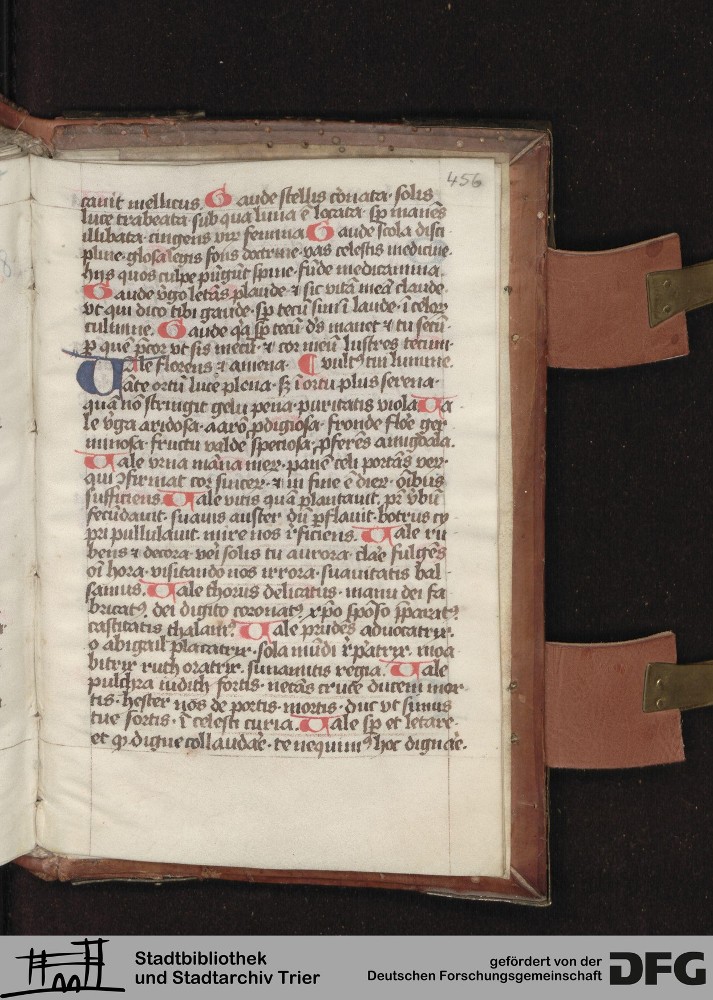 456
cavit mellicus. Gaude stellis cōnata· solis
luce trabeata· sub qua luna ē locata· sp̄ manēs
illibata· cingens vir femina Gaude scola disci
pline· glosa legis fons doctrine· vas celestis medicine·
hijs quos culpe pūgūt spine· fūde medicamina.
Gaude v̄go letās plaude· ⁊ sic vitā meā claude·
vt qui dico tibi gaude· sp̄ tecū sim ī laude· ī celox
culmine. Gaude q̄a sp̄ tecū· d̄s manet ⁊ tu secū·
p̲ quē p̄cor vt sis mecū· ⁊ cor meū lustres tecum·
Vale florens ⁊ amena· vultꝰ tui lumine.
āte ortū luce plena· sꝫ ī ortu plus serena·
quā nō stringit gelu pena· puritatis viola Va
le v̄ga aridosa· aarō prodigiosa· fronde flōe ger
minosa· fructu valde speciosa· p̄ferēs amigdala.
Vale vrna māna merꝝ· panē celi portās verꝝ·
qui ꝯfirmat cor sincerꝝ· ⁊ in fine ē dierꝝ· oībus
sufficiens. Vale vitis quā plantavit· pr̄ v̄bū
fecūdavit· suavis auster dū p̲flavit· botrus cy
pri pullulavit· mire nos r̄ficiens. Vale ru
bens ⁊ decora· veī solis tu aurora· clāe fulgēs
oī hora· visitando nos irrora· suavitatis bal
samus. Vale thorus delicatus· manu dei fa
bricatꝰ· dei digito coronatꝰ· xp̄o spōso p̄paratꝰ
castitatis thalamꝰ. Vale prudēs advocatrix·
o abigail placatrix· sola mūdi r̄patrix· moa
bitrix ruth oratrix· sunamitis regia. Vale
pulchra iudith fortis· necās cruce ducem mor
tis· hester nos de portis· mortis· duc vt simus
tue sortis· ī celesti curia. Vale sp̄ et letare·
et ꝙ digne collaudāe· te nequimꝰ hoc dignāe·
Stadtbibliothek
und Stadtarchiv Trier
gefördert von der
Deutschen Forschungsgemeinschaft
DFG